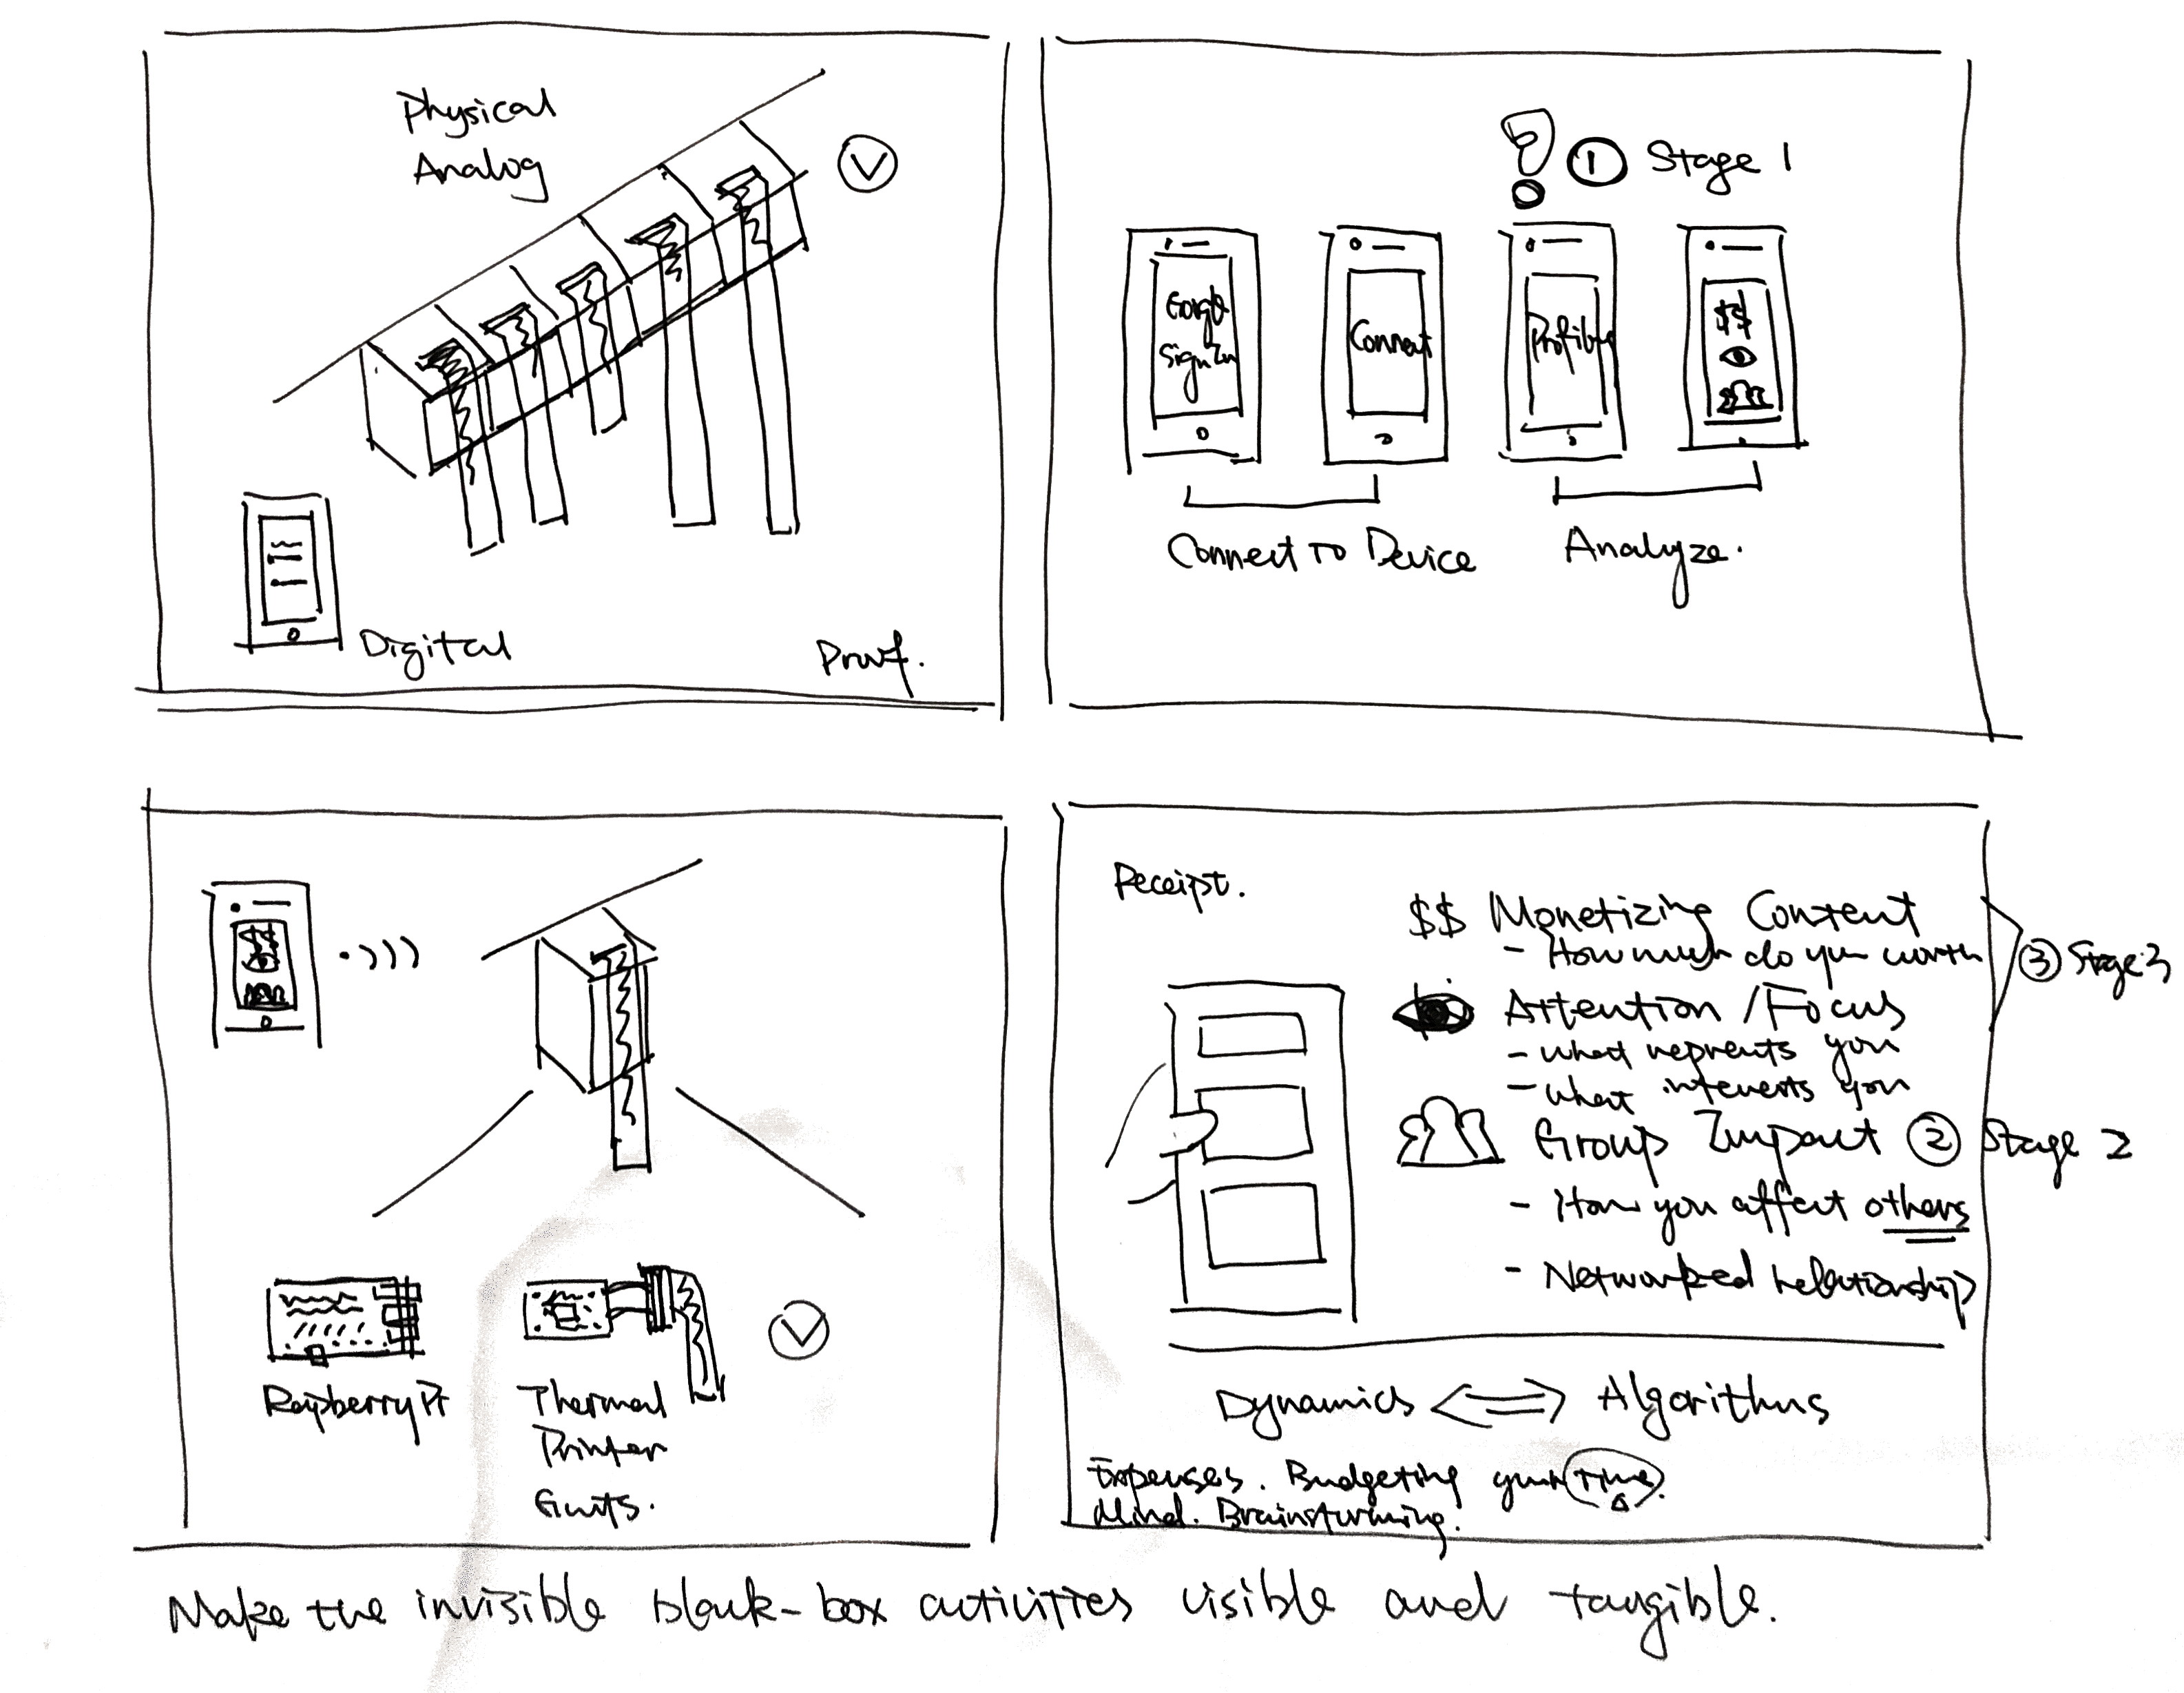 Physical
Analog
Digital
Proof.
① Stage 1
Google
Sign In
Connect
Profiling
$$
Connect To Device
Analyze.
$$
Raspberry Pi
Thermal
Printer
Guts.
Receipt.
$$ Monetizing Content
- How much do you worth
③ Stage 3
Attention / Focus
- what reprents you
- what interests you
Group Impact ② Stage 2
- How you affect others
- Networked relationship
Dynamics <=> Algorithms
Expenses. Budgeting your time.
Mind. Brainstorming.
Make the invisible black-box activities visible and tangible.